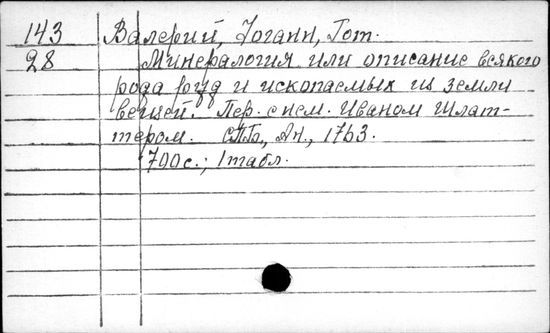 143 Валерий, Иоганн, Гот.
28 Минералогия или описание всякого
рода руд и ископаемых из земли
вещей. Пер. с нем. Иваном Шлат-
тером. СПб., Ан., 1763.
700 с.; 1 табл.